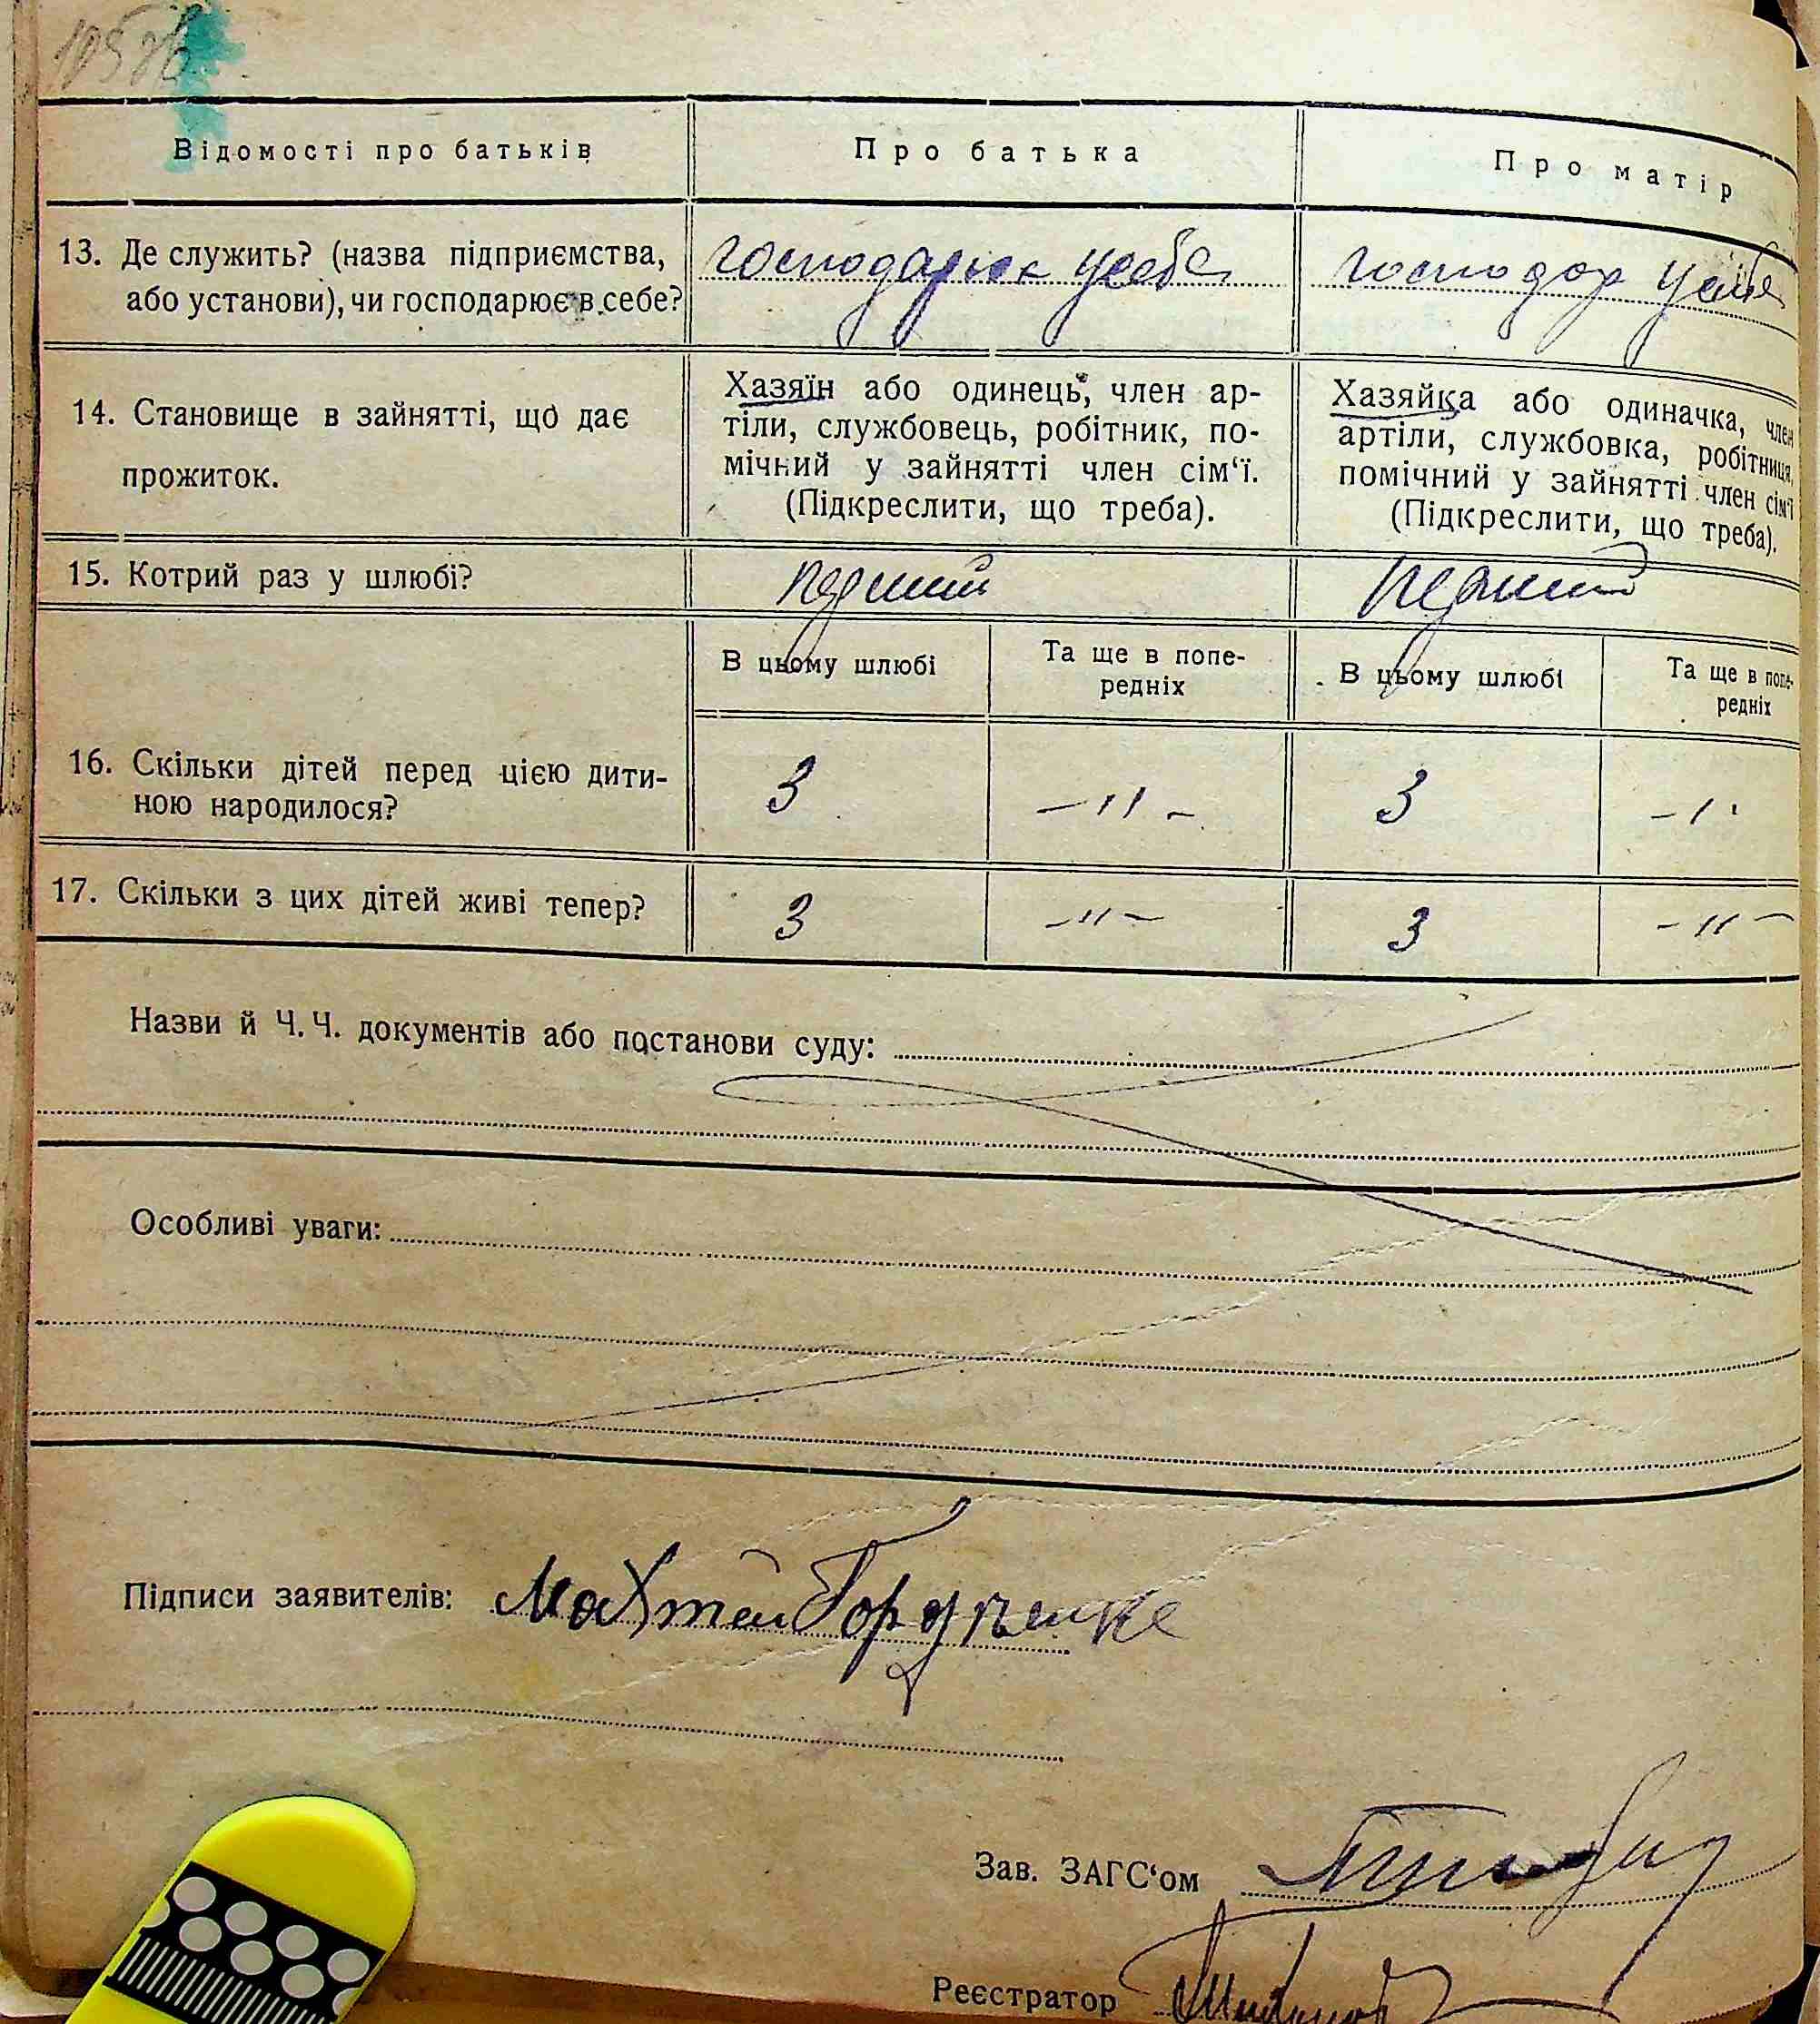 Відомості про батьків
Про батька
Про матір
13. Де служить? (назва підприємства,
або установи), чи господарює в себе?
господарює усебе
господар усебе
14. Становище в зайнятті, що дає
прожиток.
Хазяїн або одинець, член ар-
тіли, службовець, робітник, по-
мічний у зайнятті член сім‘ї.
(Підкреслити, що треба).
Хазяйка або одиначка, член
артіли, службовка, робітниця,
помічний у зайнятті член сім‘ї
(Підкреслити, що треба).
15. Котрий раз у шлюбі?
перший
перший
В цьому шлюбі
Та ще в попе-
редніх
В цьому шлюбі
Та ще в попе-
редніх
16. Скільки дітей перед цією дити-
ною народилося?
3
— " —
3
— "
17. Скільки з цих дітей живі тепер?
3
— " —
3
— " —
Назви й Ч. Ч. документів або постанови суду:
Особливі уваги:
Підписи заявителів:
Зав. ЗАГС‘ом
Реєстратор